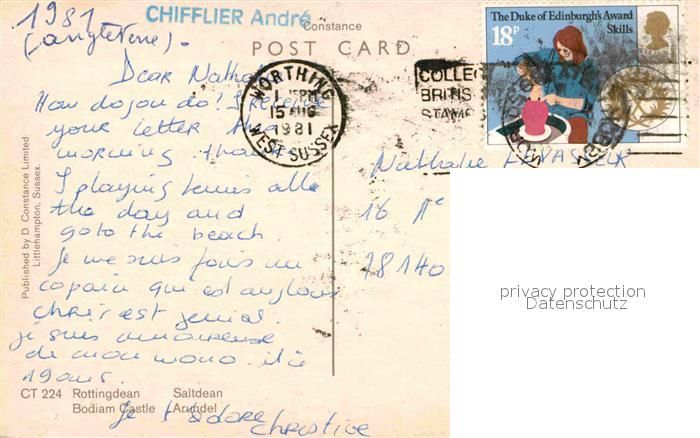 1981
(angleterre).
CHIFFLIER André
Constance
POST CARD
The Duke of Edinburgh's Award
Skills
18P
WORTHING
15 AUG
1981
WEST SUSSEX
COLLEC
BRITIS
STAMP
Dear Nathal
How do you do? I receive
your letter this
morning. than
I playing tenis alle
the day and
goto the beach.
Je me suis fais un
copain qui est anglais
chris est genial.
je suis amoureuse
de mon mono. il a
19 ans.
je t'adore
christine
Nathalie LEVASSEUR
16 Ae
78140
privacy protection
Datenschutz
Published by D. Constance Limited
Littlehampton, Sussex.
CT 224 Rottingdean Saltdean
Bodiam Castle Arundel